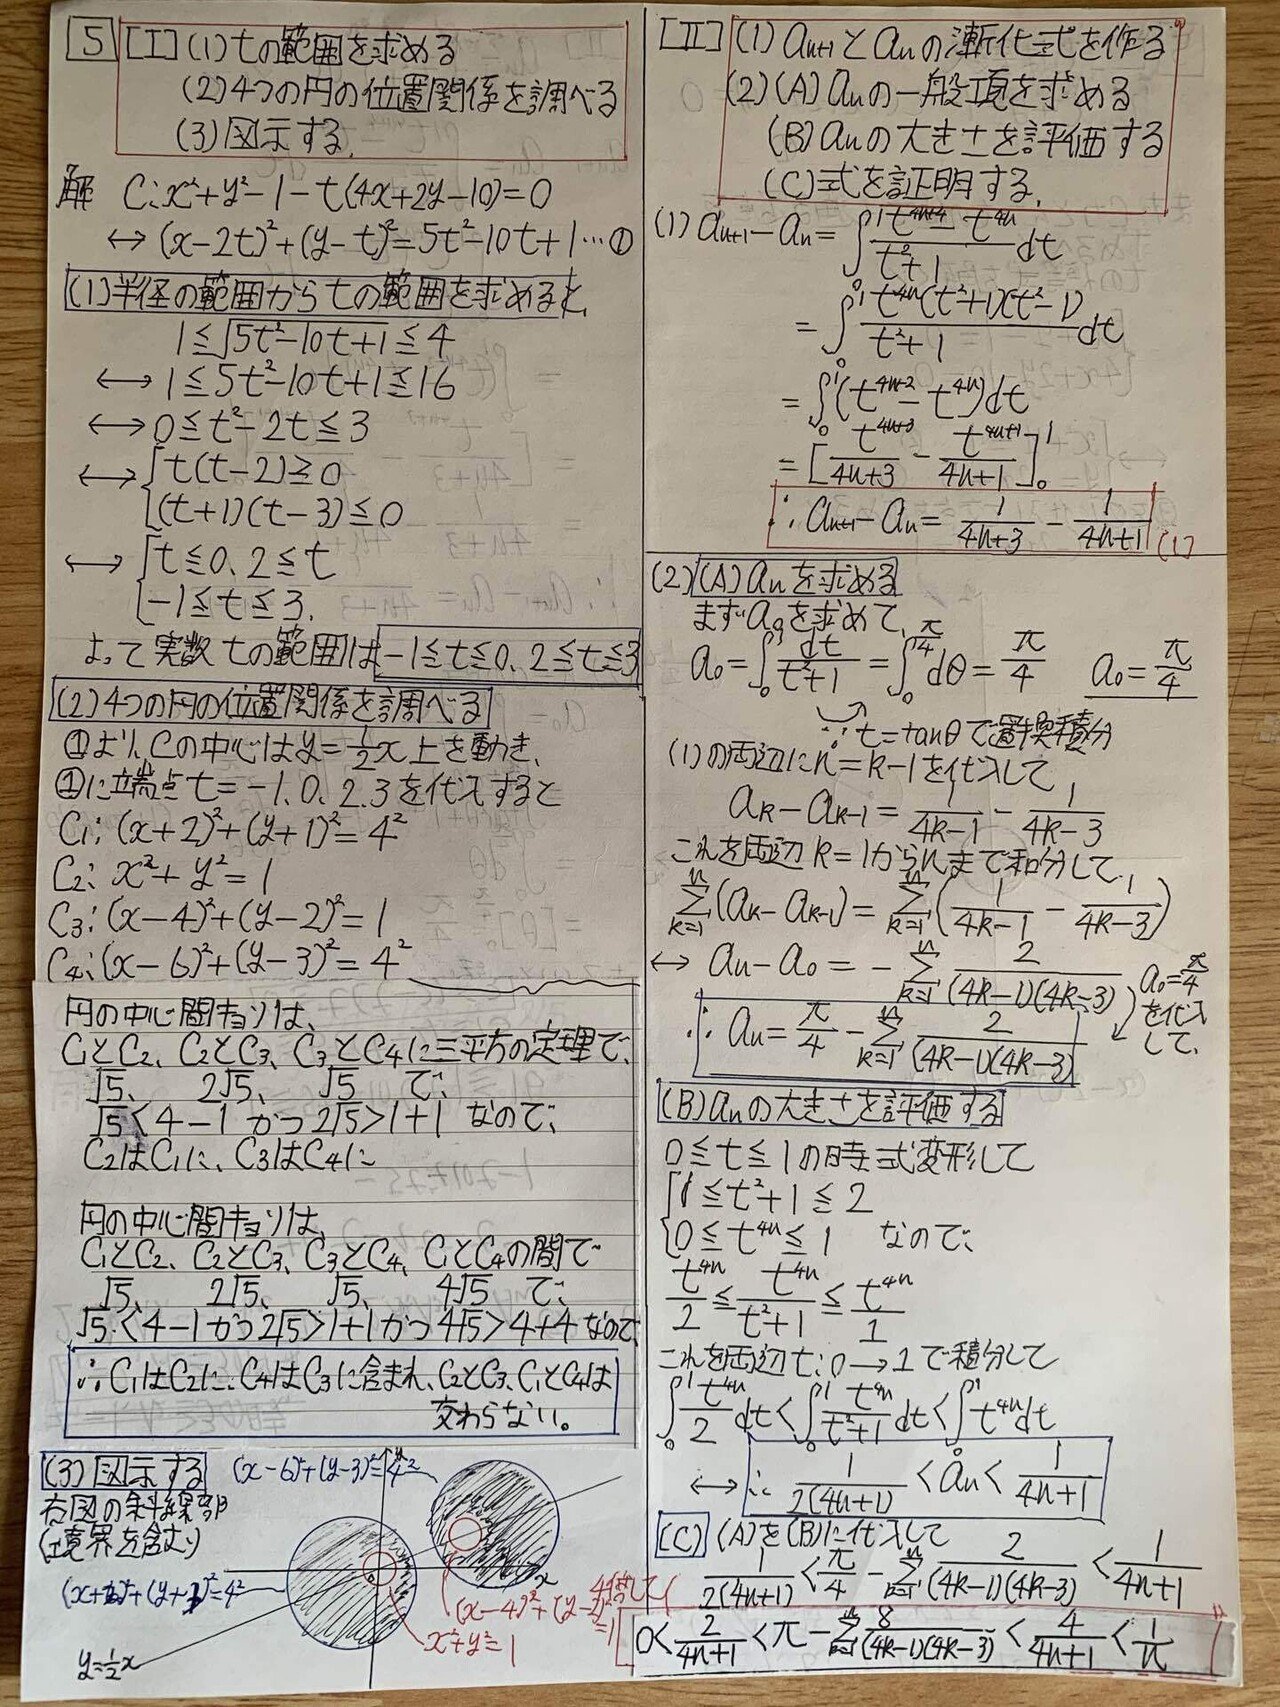 5 [I] (1) tの範囲を求める
(2) 4つの円の位置関係を調べる
(3) 図示する.
解 C: x²+y²-1-t(4x+2y-10)=0
↔ (x-2t)²+(y-t)²=5t²-10t+1…①
(1) 半径の範囲からtの範囲を求めると,
1≦√5t²-10t+1≦4
↔ 1≦5t²-10t+1≦16
↔ 0≦t²-2t≦3
↔ { t(t-2)≧0
(t+1)(t-3)≦0
↔ { t≦0、2≦t
-1≦t≦3.
よって実数tの範囲は -1≦t≦0、2≦t≦3
(2) 4つの円の位置関係を調べる
①より、Cの中心はy=1/2x上を動き、
①に端点t=-1、0、2、3を代入すると
C₁: (x+2)²+(y+1)²=4²
C₂: x²+y²=1
C₃: (x-4)²+(y-2)²=1
C₄: (x-6)²+(y-3)²=4²
円の中心間キョリは、
C₁とC₂、C₂とC₃、C₃とC₄に三平方の定理で、
√5、 2√5、 √5 で、
√5<4-1 かつ 2√5>1+1 なので、
C₂はC₁に、C₃はC₄に
円の中心間キョリは、
C₁とC₂、C₂とC₃、C₃とC₄、C₁とC₄の間で
√5、 2√5、 √5、 4√5 で、
√5<4-1かつ2√5>1+1かつ4√5>4+4なので、
∴C₁はC₂に、C₄はC₃に含まれ、C₂とC₃、C₁とC₄は
交わらない。
(3) 図示する
右図の斜線部
(境界を含む)
(x-6)²+(y-3)²=4²
y
x
(x+2)²+(y+1)²=4²
(x-4)²+(y-2)²=1
x²+y²=1
y=1/2x
[II] (1) aₙ₊₁とaₙの漸化式を作る
(2) (A) aₙの一般項を求める
(B) aₙの大きさを評価する
(C) 式を証明する.
(1) aₙ₊₁-aₙ=∫₀¹ (t⁴ⁿ⁺⁴-t⁴ⁿ)/(t²+1) dt
=∫₀¹ t⁴ⁿ(t²+1)(t²-1)/(t²+1) dt
=∫₀¹(t⁴ⁿ⁺²-t⁴ⁿ)dt
=[t⁴ⁿ⁺³/(4n+3) - t⁴ⁿ⁺¹/(4n+1)]₀¹
∴ aₙ₊₁-aₙ= 1/(4n+3) - 1/(4n+1) (1)
(2) (A) aₙを求める
まずa₀を求めて、
a₀=∫₀¹ dt/(t²+1) =∫₀^(π/4) dθ= π/4 a₀=π/4
∵ t=tanθで置換積分
(1)の両辺にn=k-1を代入して、
aₖ-aₖ₋₁= 1/(4k-1) - 1/(4k-3)
これを両辺k=1からnまで和分して、
Σₖ₌₁ⁿ(aₖ-aₖ₋₁)=Σₖ₌₁ⁿ(1/(4k-1) - 1/(4k-3))
↔ aₙ-a₀=-Σₖ₌₁ⁿ 2/(4k-1)(4k-3)
a₀=π/4
を代入
して、
∴ aₙ=π/4-Σₖ₌₁ⁿ 2/(4k-1)(4k-3)
(B) aₙの大きさを評価する
0≦t≦1の時式変形して
{ 1≦t²+1≦2
0≦t⁴ⁿ≦1 なので、
t⁴ⁿ/2≦t⁴ⁿ/(t²+1)≦t⁴ⁿ/1
これを両辺t:0→1で積分して
∫₀¹ t⁴ⁿ/2 dt<∫₀¹ t⁴ⁿ/(t²+1) dt<∫₀¹ t⁴ⁿdt
↔ ∴ 1/2(4n+1) <aₙ< 1/(4n+1)
(C) (A)を(B)に代入して
1/2(4n+1)<π/4-Σₖ₌₁ⁿ 2/(4k-1)(4k-3)<1/(4n+1)
4倍して
0<2/(4n+1)<π-Σₖ₌₁ⁿ 8/(4k-1)(4k-3)<4/(4n+1)<1/n